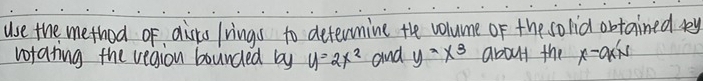 Use the method of disks/rings to determine the volume of the solid obtained by
rotating the region bounded by y=2x² and y=x³ about the x-axis